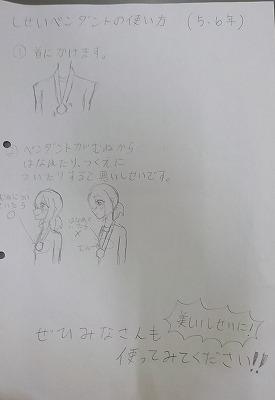 しせいペンダントの使い方 (5・6年)
① 首にかけます。
② ペンダントがむねから
はなれたり、つくえに
ついたりすると悪いしせいです。
○
×
美しいしせいに!!
ぜひみなさんも
使ってみてください!!